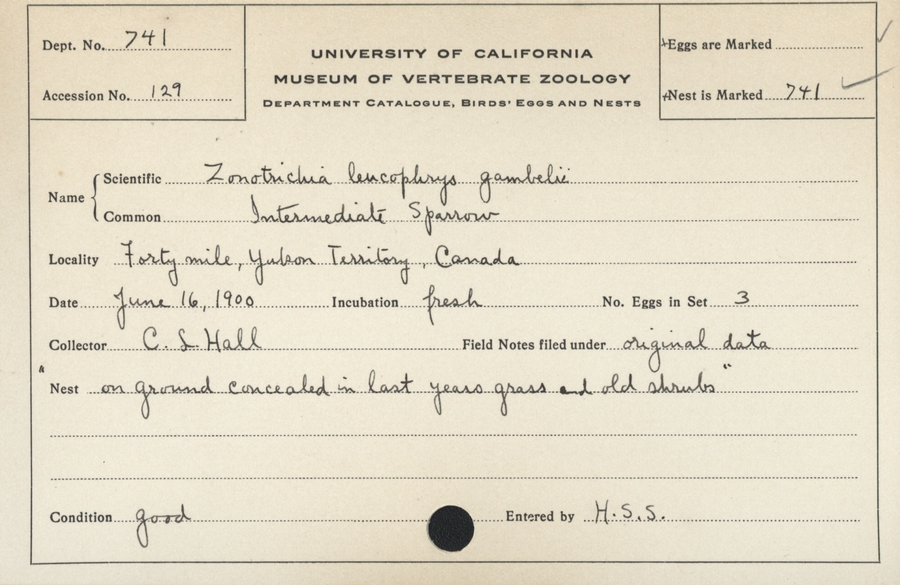 Dept. No. 741
Accession No. 129
UNIVERSITY OF CALIFORNIA
MUSEUM OF VERTEBRATE ZOOLOGY
DEPARTMENT CATALOGUE, BIRDS' EGGS AND NESTS
Eggs are Marked
Nest is Marked 741
Name
Scientific Zonotrichia leucophrys gambelii
Common Intermediate Sparrow
Locality Forty mile, Yukon Territory, Canada
Date June 16, 1900 Incubation fresh No. Eggs in Set 3
Collector C. L. Hall Field Notes filed under original data
"Nest on ground concealed in last years grass and old shrubs"
Condition good Entered by H.S.S.